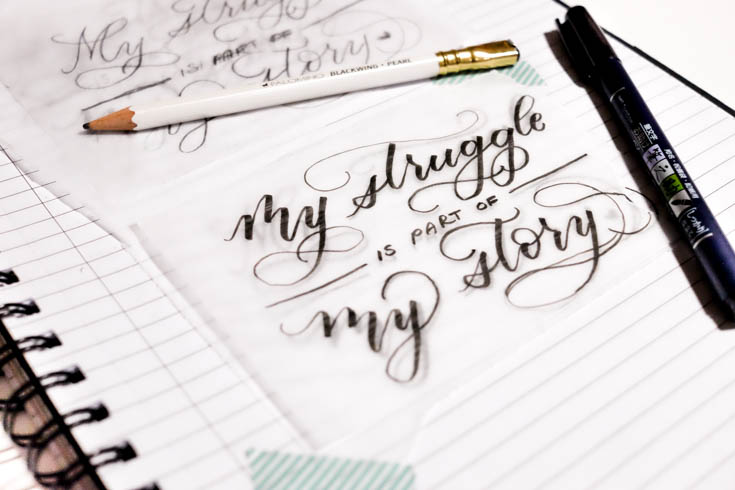 My
IS PART OF
Story
my
PALOMINO BLACKWING - PEARL
my struggle
IS PART OF
my story